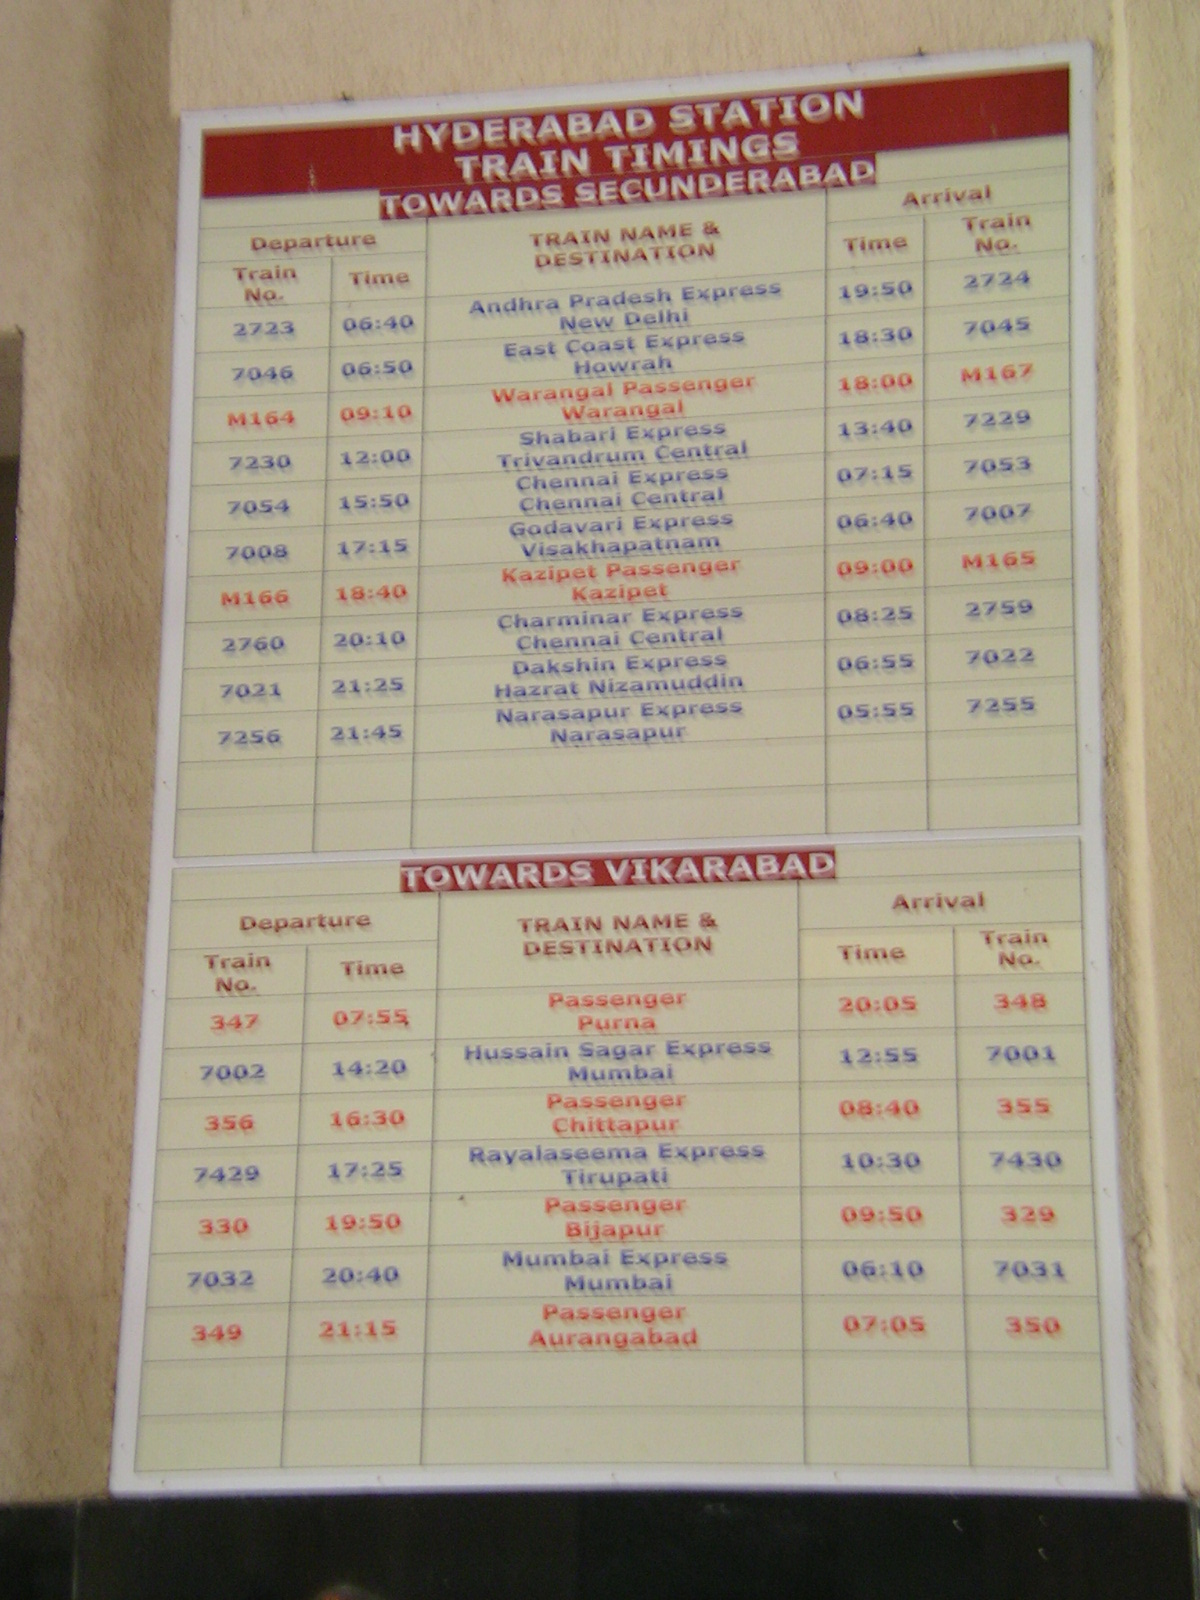 HYDERABAD STATION
TRAIN TIMINGS
TOWARDS SECUNDERABAD
Departure TRAIN NAME & DESTINATION Arrival
Train No. Time Time Train No.
2723 06:40 Andhra Pradesh Express New Delhi 19:50 2724
7046 06:50 East Coast Express Howrah 18:30 7045
M164 09:10 Warangal Passenger Warangal 18:00 M167
7230 12:00 Shabari Express Trivandrum Central 13:40 7229
7054 15:50 Chennai Express Chennai Central 07:15 7053
7008 17:15 Godavari Express Visakhapatnam 06:40 7007
M166 18:40 Kazipet Passenger Kazipet 09:00 M165
2760 20:10 Charminar Express Chennai Central 08:25 2759
7021 21:25 Dakshin Express Hazrat Nizamuddin 06:55 7022
7256 21:45 Narasapur Express Narasapur 05:55 7255
TOWARDS VIKARABAD
Departure TRAIN NAME & DESTINATION Arrival
Train No. Time Time Train No.
347 07:55 Passenger Purna 20:05 348
7002 14:20 Hussain Sagar Express Mumbai 12:55 7001
356 16:30 Passenger Chittapur 08:40 355
7429 17:25 Rayalaseema Express Tirupati 10:30 7430
330 19:50 Passenger Bijapur 09:50 329
7032 20:40 Mumbai Express Mumbai 06:10 7031
349 21:15 Passenger Aurangabad 07:05 350